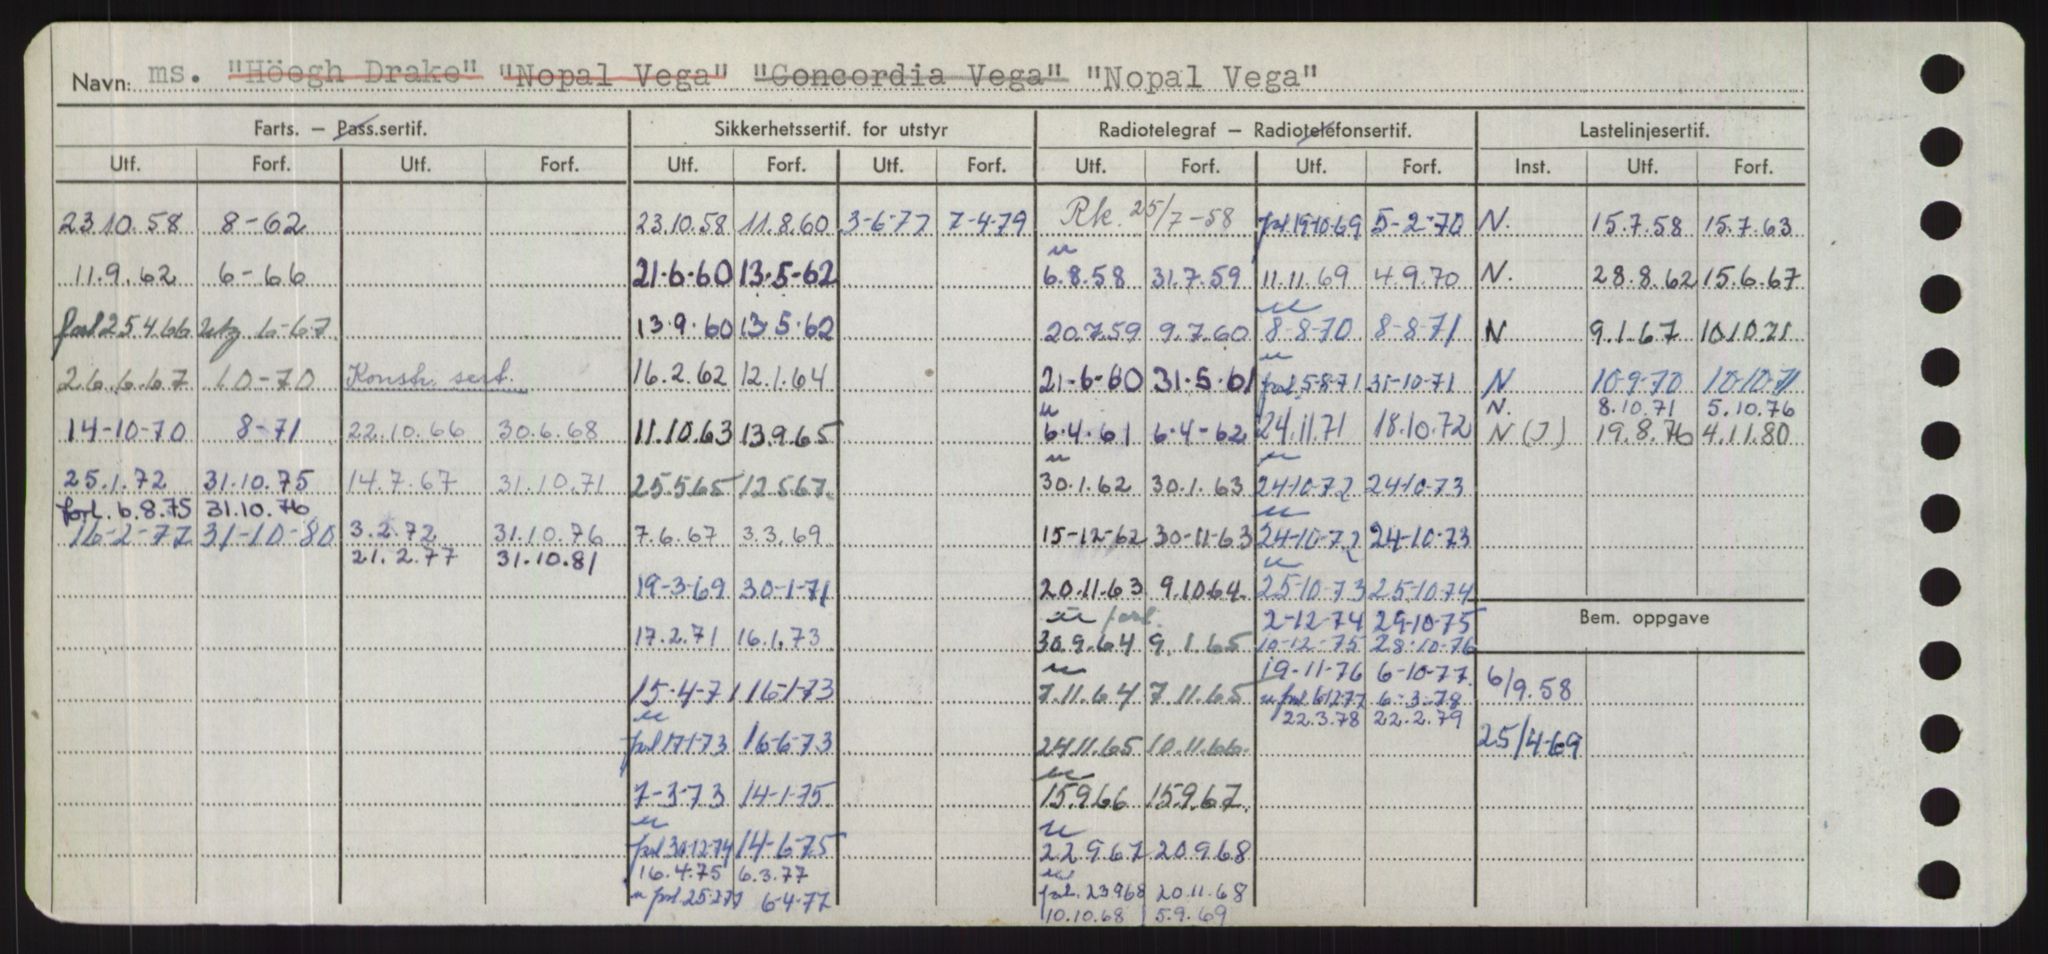 Navn: ms. "Höegh Drake" "Nopal Vega" "Concordia Vega" "Nopal Vega"
Farts. – Pass.sertif. Sikkerhetssertif. for utstyr Radiotelegraf – Radiotelefonsertif. Lastelinjesertif.
Utf. Forf. Utf. Forf. Utf. Forf. Utf. Forf. Utf. Forf. Utf. Forf. Inst. Utf. Forf.
23.10.58 8-62 23.10.58 11.8.60 3-6-77 7-4-79 Rk. 25/7-58 forl.19-10-69 5-2-70 N. 15.7.58 15.7.63
11.9.62 6-66 21-6-60 13-5-62 6.8.58 31.7.59 11.11.69 4.9.70 N. 28.8.62 15.6.67
forl 25.4.66 utg 6-67 13.9.60 13.5.62 20.7.59 9.7.60 8-8-70 8-8-71 N 9.1.67 10.10.71
26.6.67 10-70 Konstr. sert. 16.2.62 12.1.64 21-6-60 31.5.61 forl.5-8-71 31-10-71 N 10-9-70 10-10-71
N. 8.10.71 5.10.76
14-10-70 8-71 22.10.66 30.6.68 11.10.63 13.9.65 6.4.61 6-4-62 24.11.71 18.10.72 N (J) 19.8.76 4.11.80
25.1.72 31.10.75 14.7.67 31.10.71 25.5.65 12.5.67. 30.1.62 30.1.63 24-10-72 24-10-73
forl. 6.8.75 31.10.76
16-2-77 31-10-80 3.2.72 31.10.76 7.6.67 3.3.69 15-12-62 30-11-63 24-10-72 24-10-73
21.2.77 31.10.81
19-3-69 30-1-71 20.11.63 9.10.64. 25-10-73 25-10-74
forl. 2-12-74 29-10-75 Bem. oppgave
17.2.71 16.1.73 30.9.64 9.1.65 10-12-75 28-10-76
19-11-76 6-10-77. 6/9.58
15-4-71 16-1-73 7.11.64 7.11.65 forl. 6-12-77 6-3-78
22.3.78 22.2.79
forl 17-1-73 16-6-73 24.11.65 10.11.66. 25/4-69
7-3-73 14-1-75 15.9.66 15.9.67.
forl 30-12-74 14-6-75 22.9.67 20.9.68
16.4.75 6.3.77
forl. 25-2-77 6-4-77 forl. 23.9.68 20.11.68
10.10.68 5.9.69